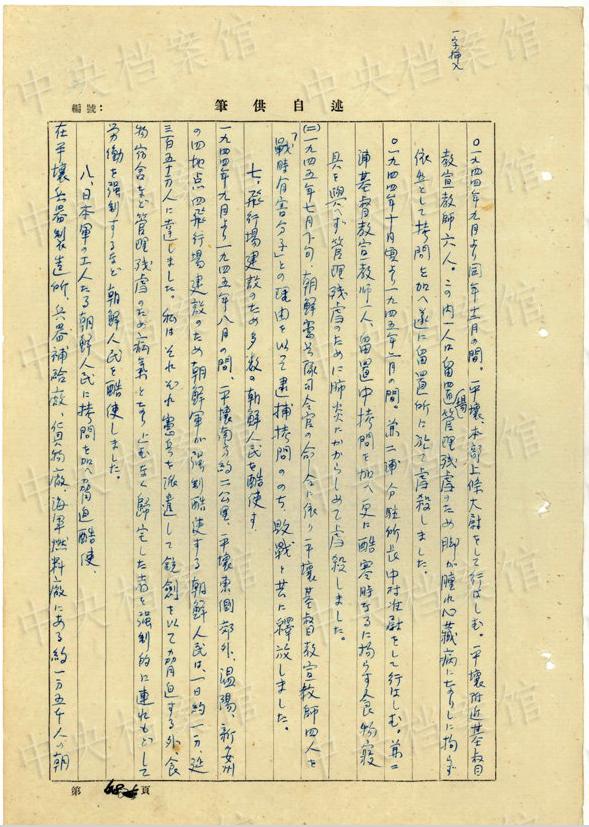 一字挿入
述自供筆
編號:
〇一九四四年九月より同年十二月の間。平壌、本部上條大尉をして行はしむ。平壌附近基督
教宣教師六人。この内一人は留置場管理残虐ため脚が腫れ心臓病になりしに拘らず
依然として拷問を加へ遂に留置所に於て虐殺しました。
〇一九四四年十月頃より一九四五年二月の間。兼二浦分駐所長中村准尉をして行はしむ。兼二
浦基督教宣教師一人、留置中拷問を加へ更に酷寒時なるに拘らず食物寝
具を與へず管理残虐のために肺炎にかからしめて虐殺しました。
(二)一九四五年七月下旬、朝鮮憲兵隊司令官の命令に依り平壌基督教宣教師四人を
「戦時有害分子」との理由を以て逮捕拷問ののち敗戦と共に釋放しました。
七、飛行場建設のため多数の朝鮮人民を酷使す
一九四四年九月より一九四五年八月の間、平壌南方約二公里、平壌東側郊外、温陽、新安州
の四地点四飛行場建設のため朝鮮軍が強制酷使する朝鮮人民は一日約一万延
三百五十万人に達しました。私はそれぞれ憲兵を派遣して銃剣を以て脅迫する外、食
物宿舎など管理残虐のため病気となり止むなく歸宅した者を強制的に連れもどして
労働を強制するなど朝鮮人民を酷使しました。
八、日本軍の工人たる朝鮮人民に拷問を加へ脅迫酷使、
在平壌兵器製造所、兵器補給廠、貨物廠、海軍燃料廠にある約一万五千人の朝
第 68 頁
中央档案馆